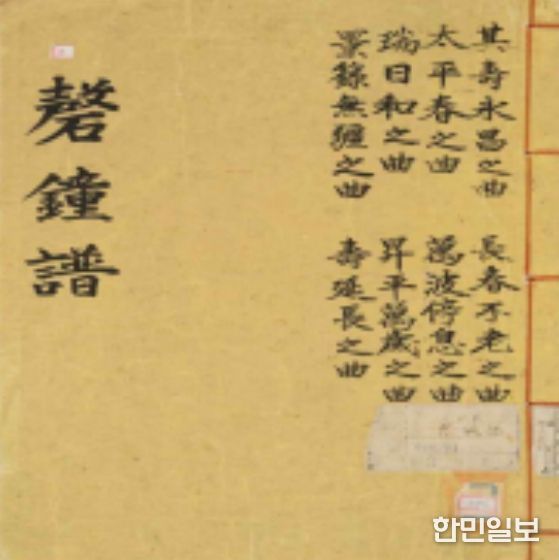 磬鐘譜
其壽永昌之曲
太平春之曲
瑞日和之曲
景籙無疆之曲
長春不老之曲
萬波停息之曲
昇平萬歲之曲
壽延長之曲
한민일보